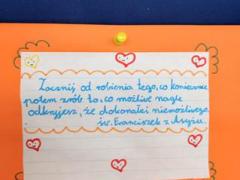 Zacznij od robienia tego, co konieczne
potem zrób to, co możliwe nagle
odkryjesz, że dokonałeś niemożliwego
św. Franciszek z Asyżu.